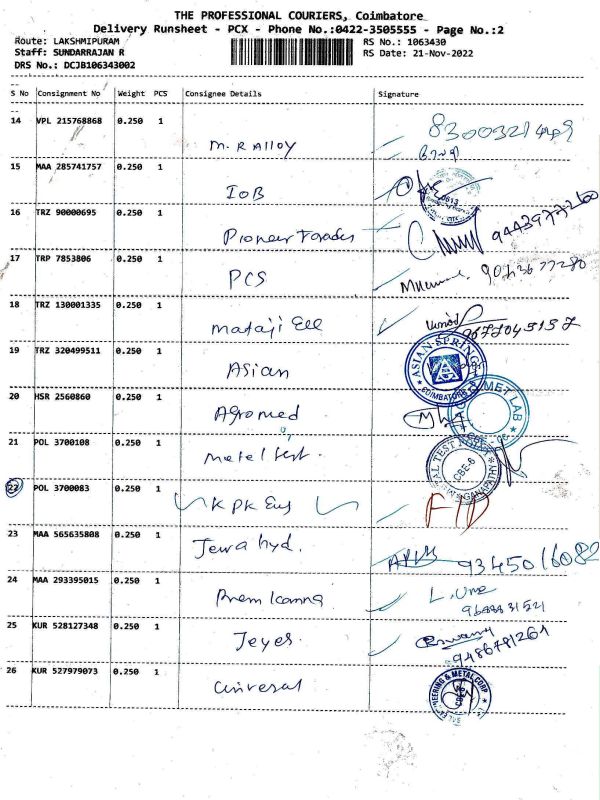 THE PROFESSIONAL COURIERS, Coimbatore
Delivery Runsheet - PCX - Phone No.:0422-3505555 - Page No.:2
Route: LAKSHMIPURAM
RS No.: 1063430
Staff: SUNDARRAJAN R
RS Date: 21-Nov-2022
DRS No.: DCJB106343002
S No Consignment No Weight PCS Consignee Details Signature
14 VPL 215768868 0.250 1 M.R Alloy 8300321449
15 MAA 285741757 0.250 1 IOB
16 TRZ 90000695 0.250 1 Pioneer Traders 9443977260
17 TRP 7853806 0.250 1 PCS 9043677280
18 TRZ 130001335 0.250 1 mataji Ele Vinod 9677045157
19 TRZ 320499511 0.250 1 Asian ASIAN SPRING COIMBATORE
20 HSR 2560860 0.250 1 Agromed MET LAB
21 POL 3700108 0.250 1 metal test TEST CBE-6 GANAPATHY
22 POL 3700083 0.250 1 KPK Eng
23 MAA 565635808 0.250 1 Jewa hyd. 9345016082
24 MAA 293395015 0.250 1 Prem Kanna
25 KUR 528127348 0.250 1 Jeyes 9486781261
26 KUR 527979073 0.250 1 Universal ENGINEERING & METAL CORP